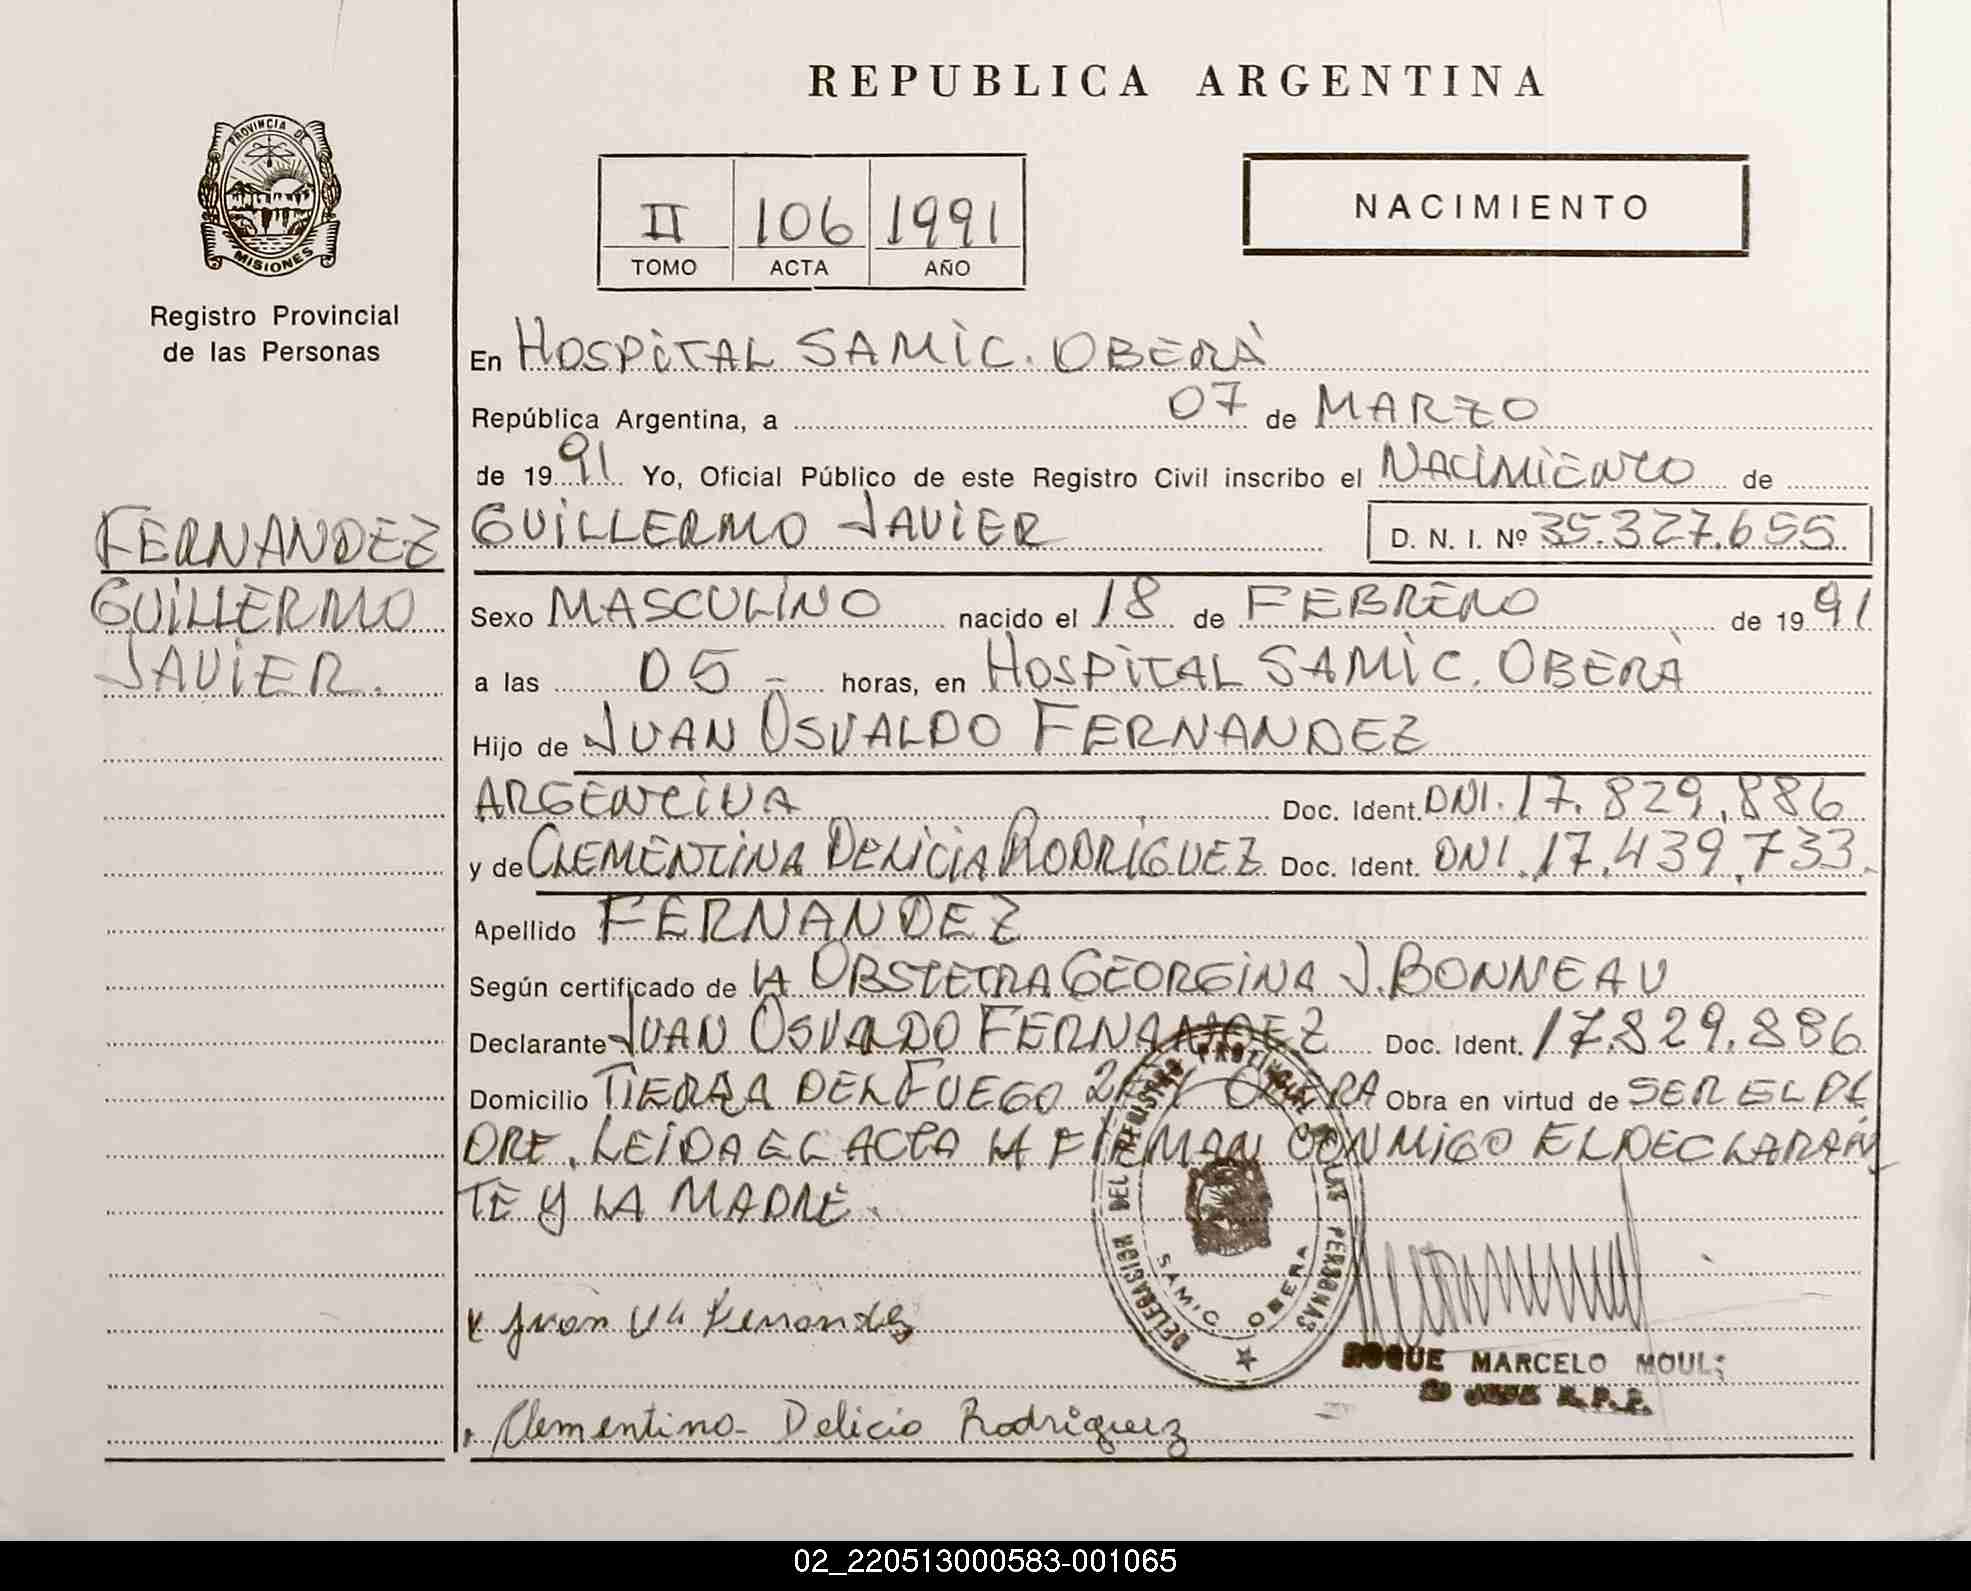 REPUBLICA ARGENTINA
PROVINCIA DE
MISIONES
Registro Provincial
de las Personas
II 106 1991
TOMO ACTA AÑO
NACIMIENTO
En HOSPITAL SAMIC. OBERÁ
República Argentina, a 07 de MARZO
de 1991 Yo, Oficial Público de este Registro Civil inscribo el NACIMIENTO de
FERNANDEZ
GUILLERMO
JAVIER.
GUILLERMO JAVIER D. N. I. Nº 35.327.655
Sexo MASCULINO nacido el 18 de FEBRERO de 1991
a las 05 - horas, en HOSPITAL SAMIC. OBERÁ
Hijo de JUAN OSVALDO FERNANDEZ
ARGENTINA Doc. Ident. DNI. 17.829.886
y de CLEMENTINA DELICIA RODRIGUEZ Doc. Ident. DNI. 17.439.733.
Apellido FERNANDEZ
Según certificado de LA OBSTETRA GEORGINA J. BONNEAU
Declarante JUAN OSVALDO FERNANDEZ Doc. Ident. 17.829.886
Domicilio TIERRA DEL FUEGO OBERA Obra en virtud de SER EL PA
DRE. LEIDA EL ACTA LA FIRMAN CONMIGO EL DECLARAN
TE Y LA MADRE.
DELEGACION DEL REGISTRO PROVINCIAL DE LAS PERSONAS
SAMIC OBERA
Juan Fernandez
ROQUE MARCELO MOUL
Clementina Delicia Rodriguez
02_220513000583-001065